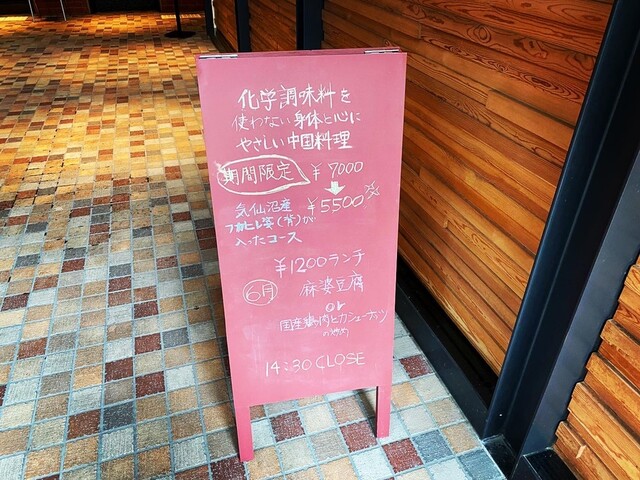 化学調味料を
使わない身体と心に
やさしい中国料理
期間限定 ¥7000
↓
気仙沼産 ¥5500
フカヒレ姿(背)が
入ったコース
¥1200ランチ
6月 麻婆豆腐
or
国産鶏肉とカシューナッツ
の炒め
14:30 CLOSE